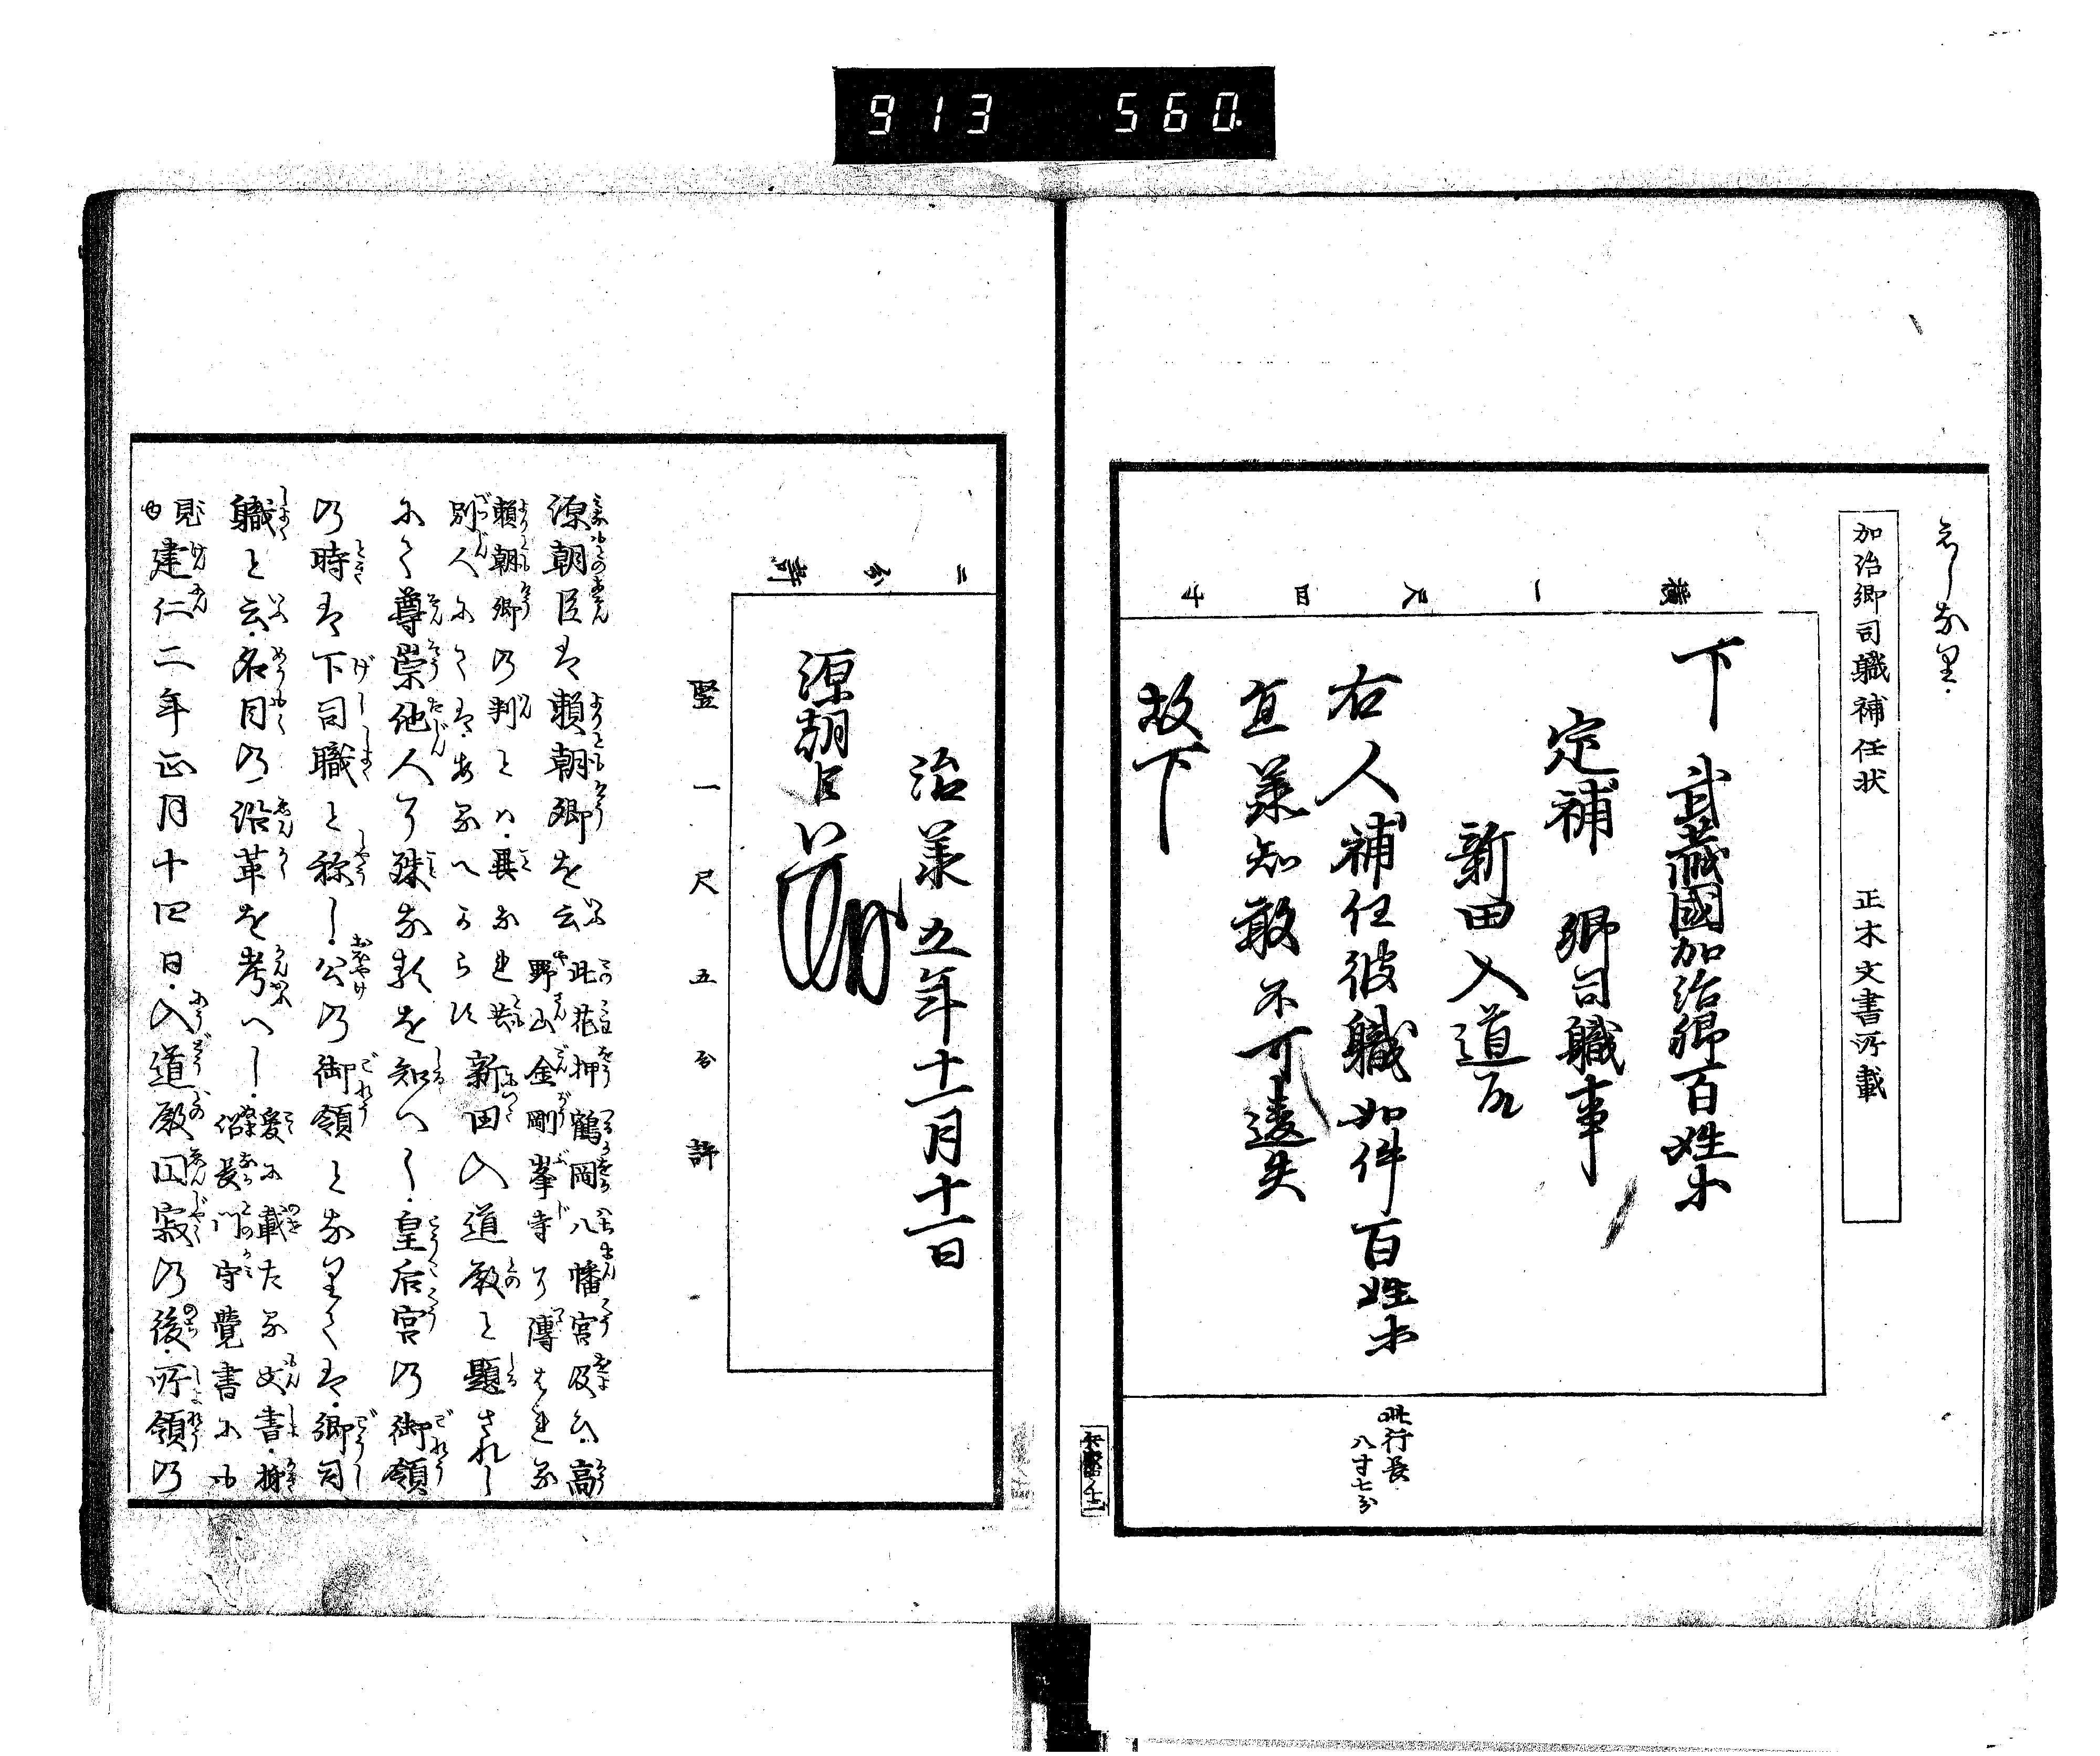 913 560
るしなり.
加治郷司職補任状 正木文書所載
横一尺四寸
下 武蔵國加治郷百姓等
定補 郷司職事
新田入道殿
右人補任彼職如件百姓等
宜承知敢不可違失
故下
此行長
八寸七分
二分許
治承五年十一月十一日
源朝臣
竪一尺五分許
源朝臣は頼朝卿を云 此花押鶴岡八幡宮及ひ高
野山金剛峯寺に傳はれる
頼朝卿の判とハ.異なれ共
別人にてはあるへからす 新田入道殿と題されし
にて尊崇他人に殊なるを知へし.皇后宮の御領
の時は下司職と称し.公の御領となりては.郷司
職と云.名目の沿革を考へし.爰に載たる文書.梶
俗長門守覺書にも
見
也 建仁二年正月十四日.入道殿圓寂の後.所領の